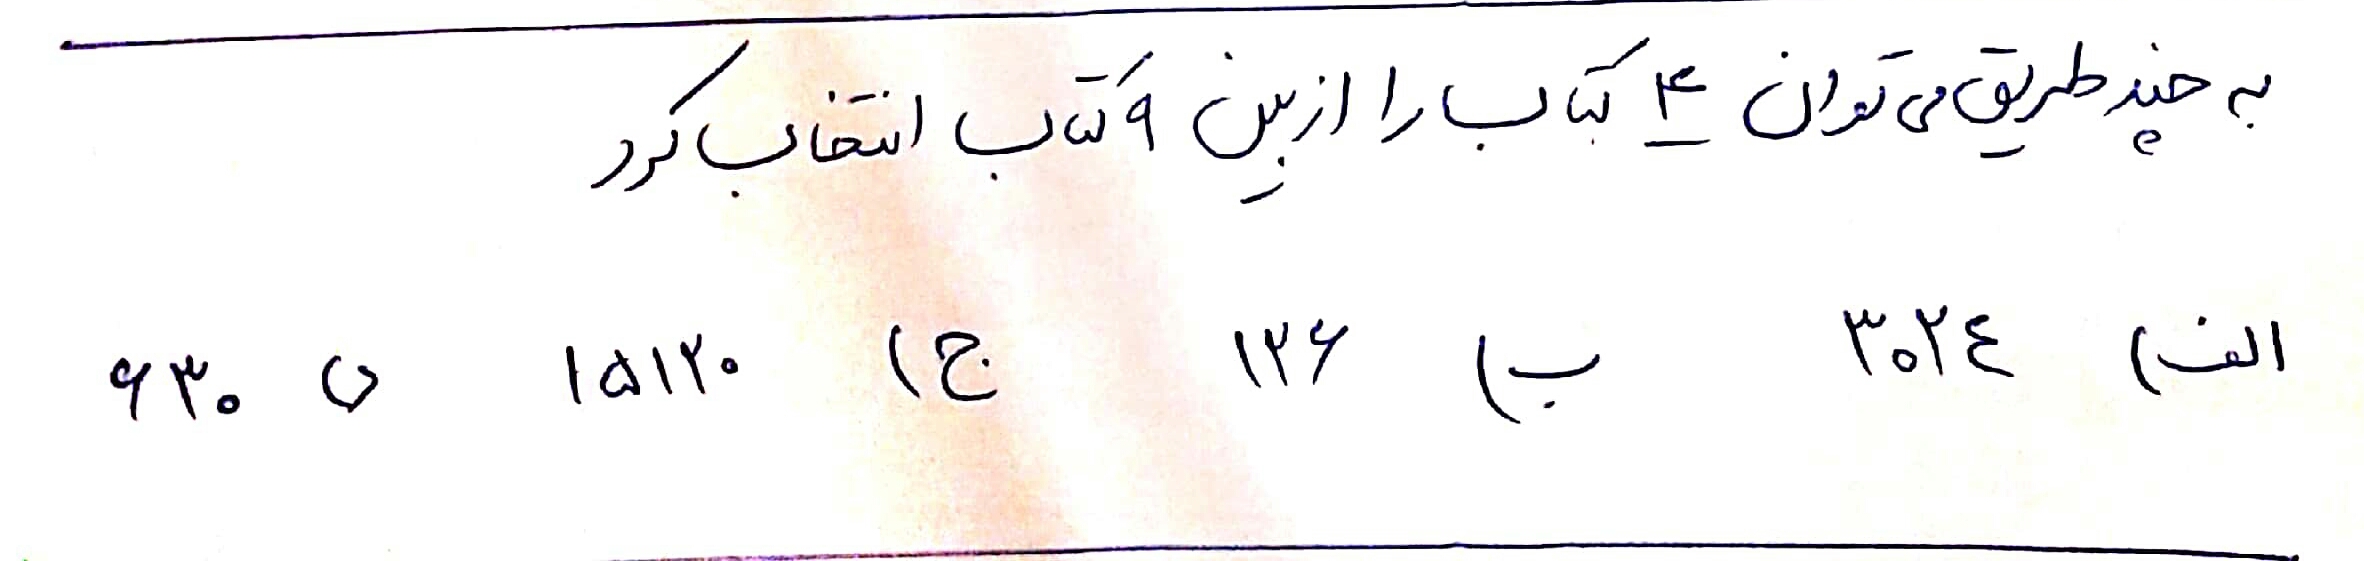 به چند طریق می توان ۴ کتاب را از بین ۹ کتاب انتخاب کرد
الف) ۳۰۲٤ ب) ۱۲۶ ج) ۱۵۱۲۰ د) ۶۳۰